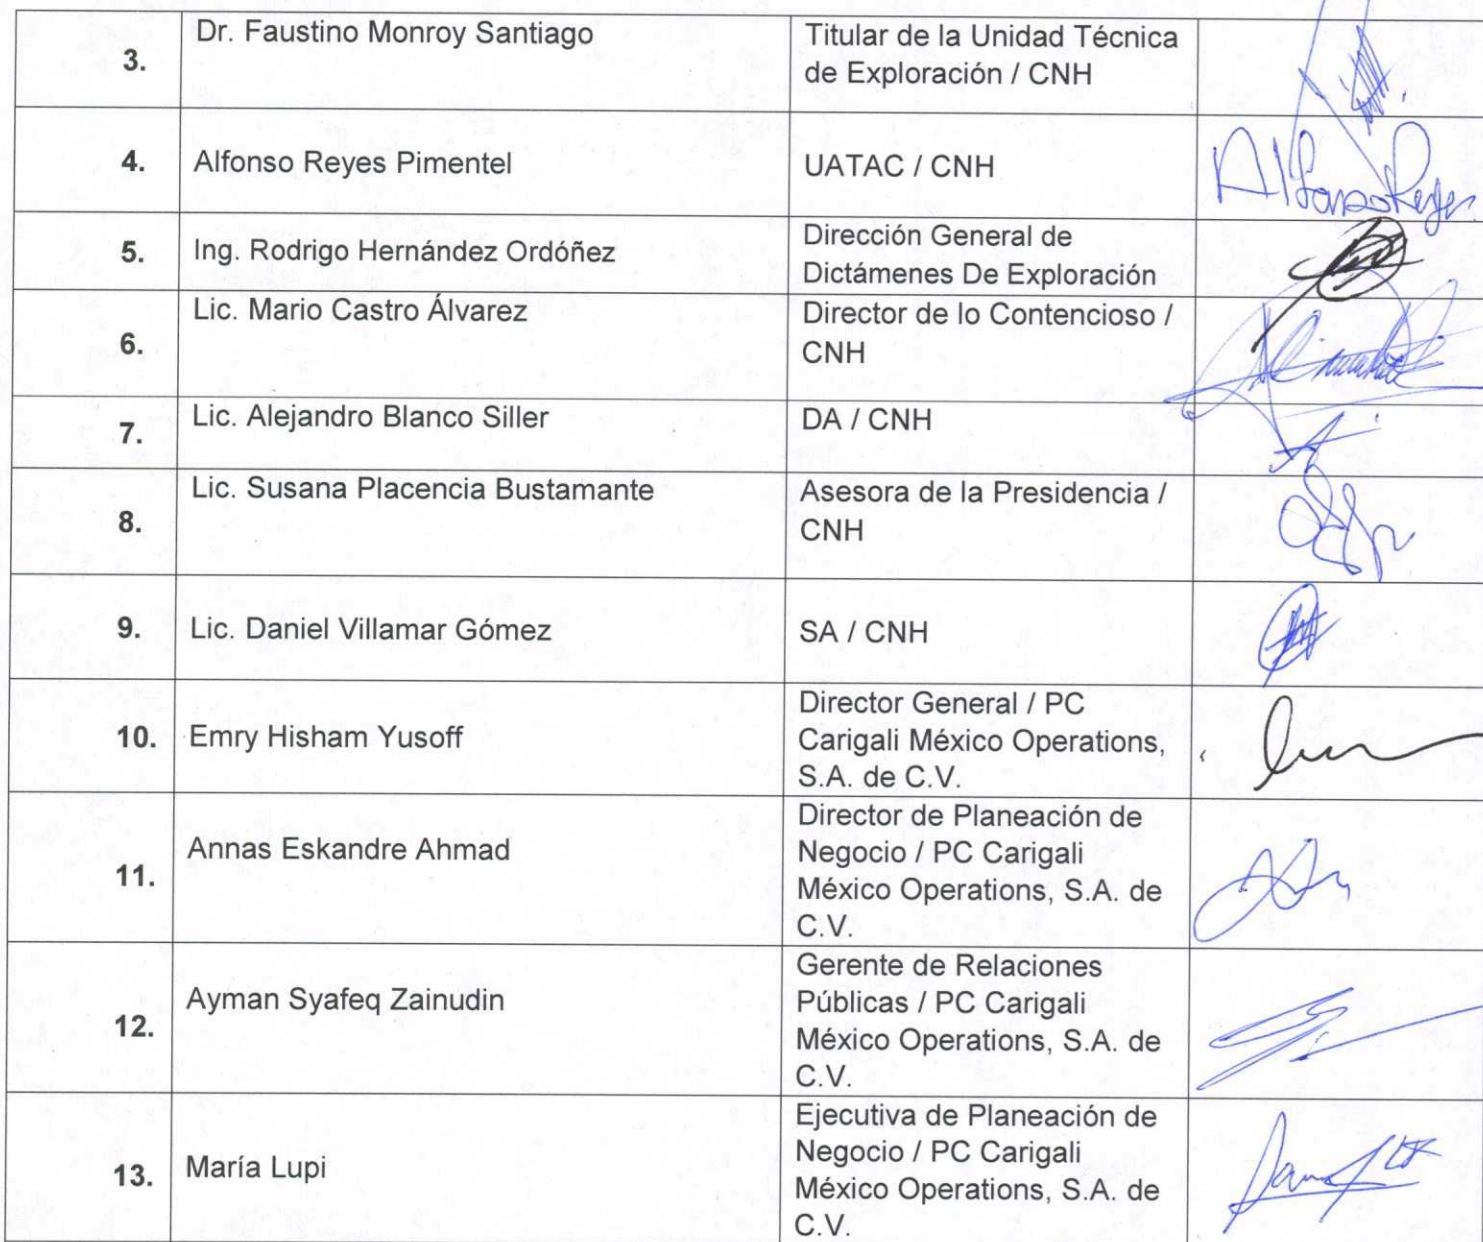 3.
Dr. Faustino Monroy Santiago
Titular de la Unidad Técnica
de Exploración / CNH
4.
Alfonso Reyes Pimentel
UATAC / CNH
Alfonso Reyes
5.
Ing. Rodrigo Hernández Ordóñez
Dirección General de
Dictámenes De Exploración
6.
Lic. Mario Castro Álvarez
Director de lo Contencioso /
CNH
7.
Lic. Alejandro Blanco Siller
DA / CNH
8.
Lic. Susana Placencia Bustamante
Asesora de la Presidencia /
CNH
9.
Lic. Daniel Villamar Gómez
SA / CNH
10.
Emry Hisham Yusoff
Director General / PC
Carigali México Operations,
S.A. de C.V.
11.
Annas Eskandre Ahmad
Director de Planeación de
Negocio / PC Carigali
México Operations, S.A. de
C.V.
12.
Ayman Syafeq Zainudin
Gerente de Relaciones
Públicas / PC Carigali
México Operations, S.A. de
C.V.
13.
María Lupi
Ejecutiva de Planeación de
Negocio / PC Carigali
México Operations, S.A. de
C.V.